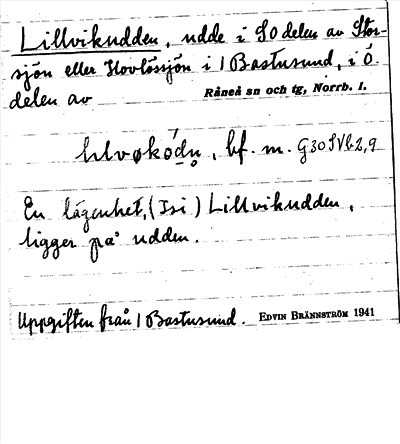 Lillvikudden, udde i SO delen av Stor-
sjön eller Hovlössjön i 1 Bastusund, i ö.
delen av Råneå sn och tg, Norrb. l.
bf. m. G30SVb2,9
En lägenhet, (Isi) Lillvikudden,
ligger på udden.
Uppgiften från 1 Bastusund. EDVIN BRÄNNSTRÖM 1941